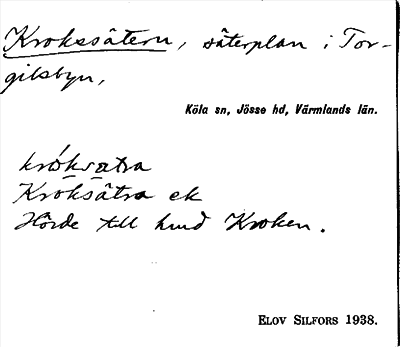 Krokssätern, säterplan i Tor-
gilsbyn,
Köla sn, Jösse hd, Värmlands län.
króksatra
Kroksätra ek
Hörde till hmd Kroken.
ELOV SILFORS 1938.